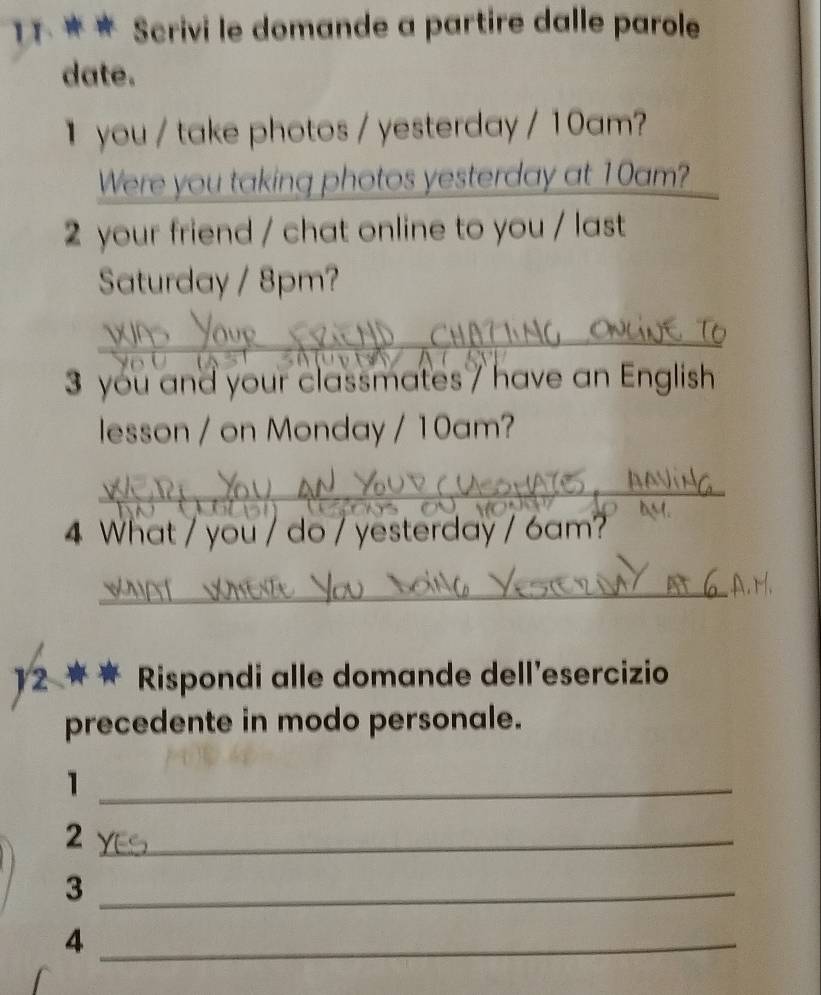 11 * * Scrivi le domande a partire dalle parole
date.
1 you / take photos / yesterday / 10am?
Were you taking photos yesterday at 10am?
2 your friend / chat online to you / last
Saturday / 8pm?
WAS YOUR FRIEND CHATTING ONLINE TO
YOU LAST SATURDAY AT 8PM
3 you and your classmates / have an English
lesson / on Monday / 10am?
WERE YOU AN YOUR CLASSMATES, HAVING
AN ENGLISH LESSONS ON MONDAY 10 AM.
4 What / you / do / yesterday / 6am?
WHAT WHERE YOU DOING YESTERDAY AT 6 A.M.
12 * * Rispondi alle domande dell'esercizio
precedente in modo personale.
1
2 YES
3
4